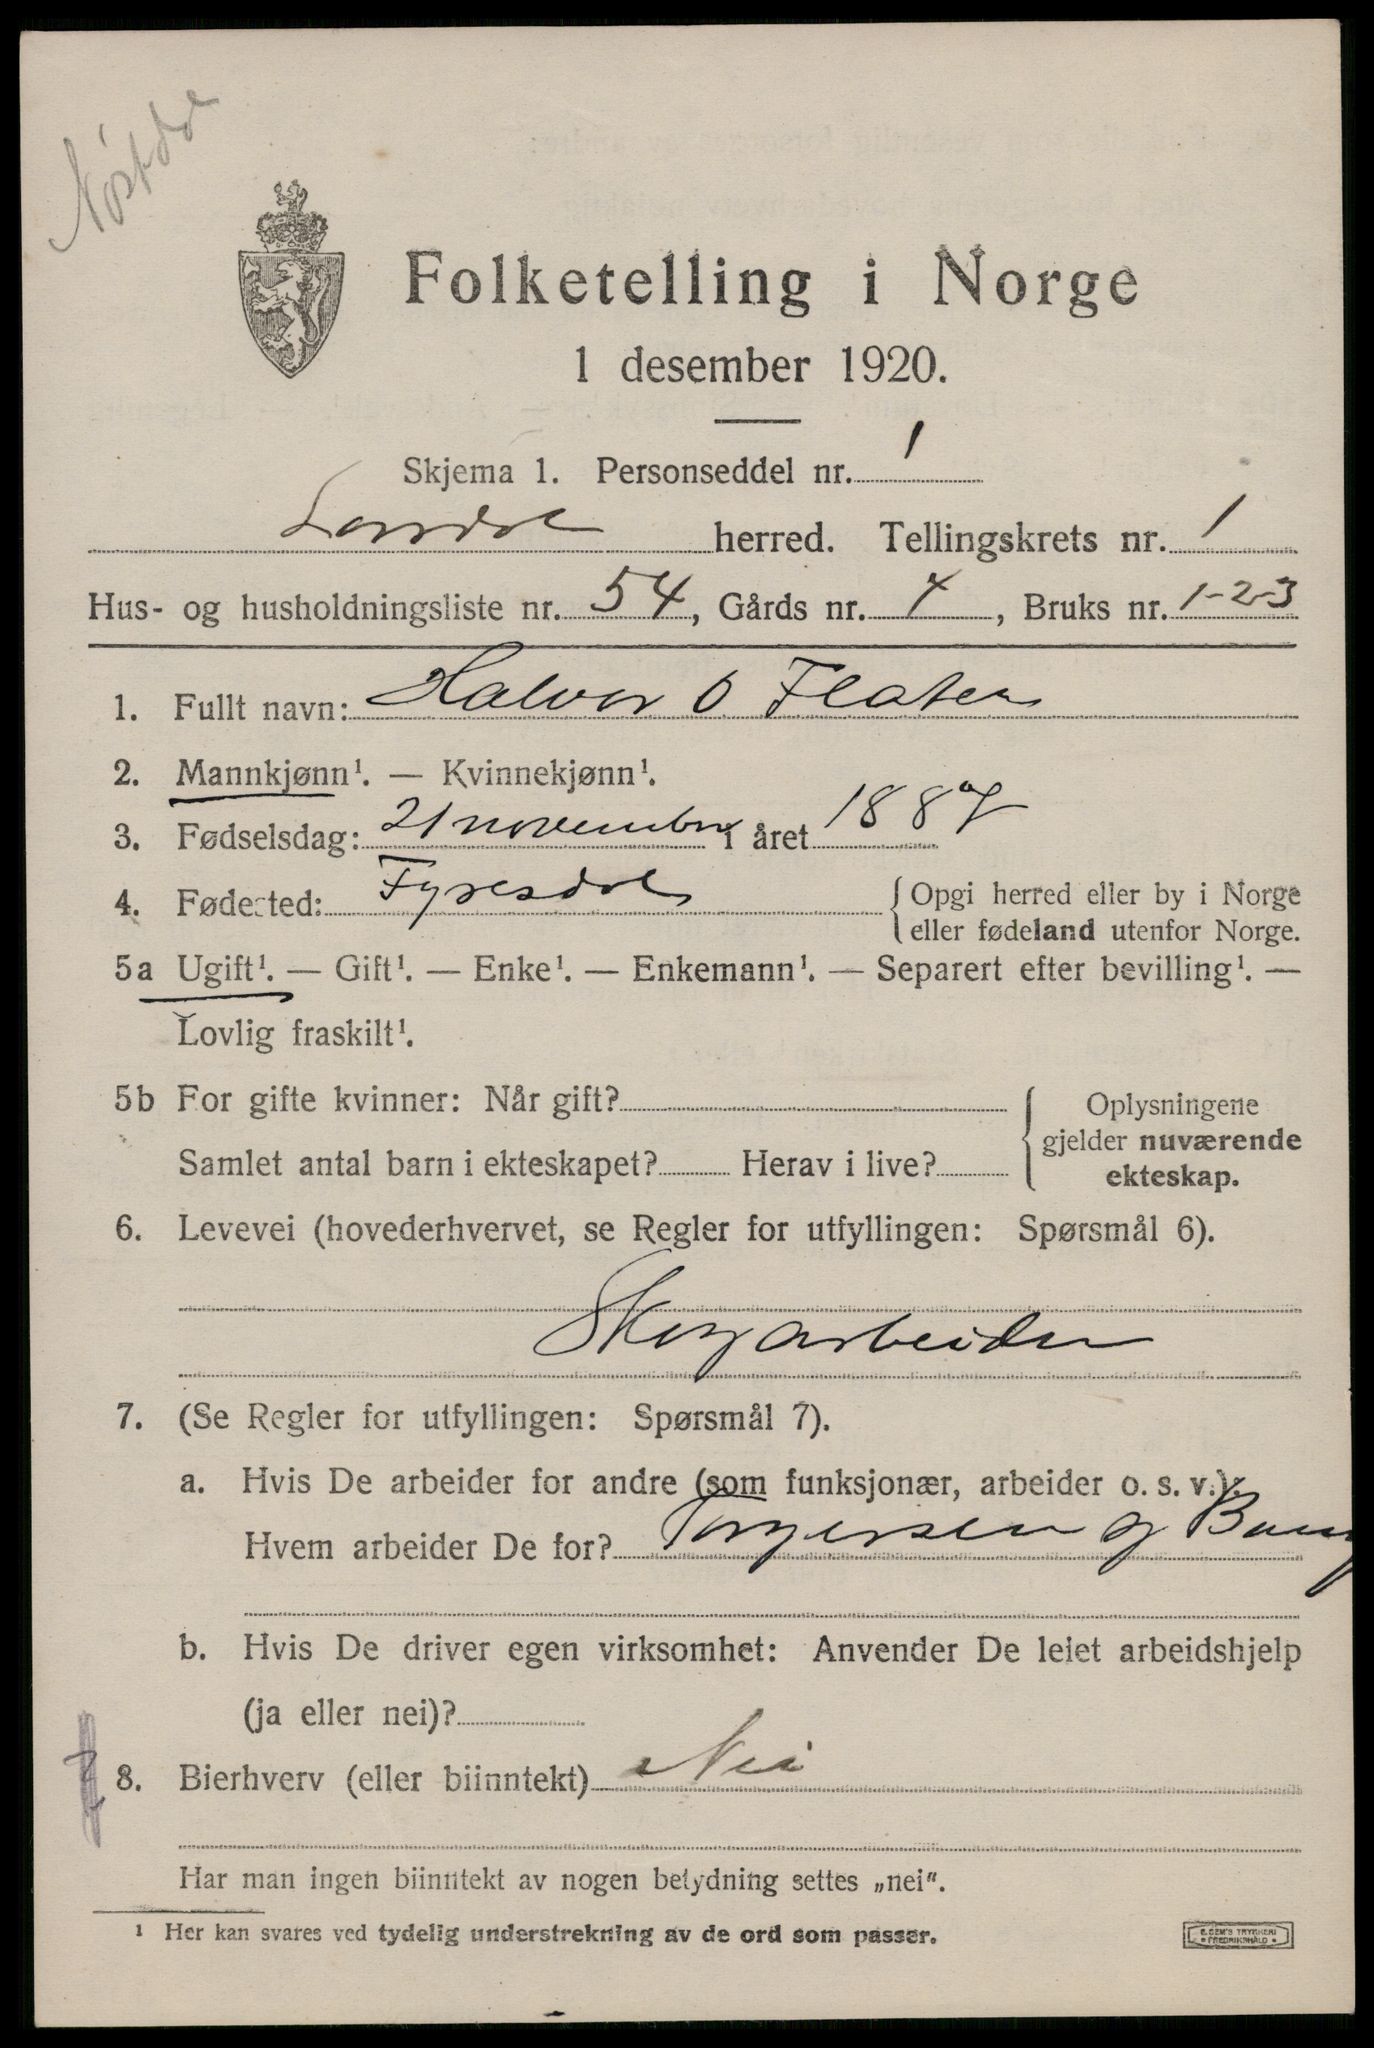 Nöstdal
Folketelling i Norge
1 desember 1920.
Skjema 1. Personseddel nr. 1
Lardal herred. Tellingskrets nr. 1
Hus- og husholdningsliste nr. 54, Gårds nr. 4, Bruks nr. 1-2-3
1. Fullt navn: Halvor O Flaten
2. Mannkjønn¹. — Kvinnekjønn¹.
3. Fødselsdag: 21 november i året 1887
4. Fødested: Fyresdal { Opgi herred eller by i Norge
eller fødeland utenfor Norge.
5a Ugift¹. — Gift¹. — Enke¹. — Enkemann¹. — Separert efter bevilling¹. —
Lovlig fraskilt¹.
5b For gifte kvinner: Når gift?
Samlet antal barn i ekteskapet? Herav i live?
Oplysningene
gjelder nuværende
ekteskap.
6. Levevei (hovederhvervet, se Regler for utfyllingen: Spørsmål 6).
Skogarbeider
7. (Se Regler for utfyllingen: Spørsmål 7).
a. Hvis De arbeider for andre (som funksjonær, arbeider o. s. v.):
Hvem arbeider De for? Torgersen og
b. Hvis De driver egen virksomhet: Anvender De leiet arbeidshjelp
(ja eller nei)?
8. Bierhverv (eller biinntekt) Nei
Har man ingen biinntekt av nogen betydning settes „nei".
¹ Her kan svares ved tydelig understrekning av de ord som passer.
E. SEM'S TRYKKERI
FREDRIKSHALD